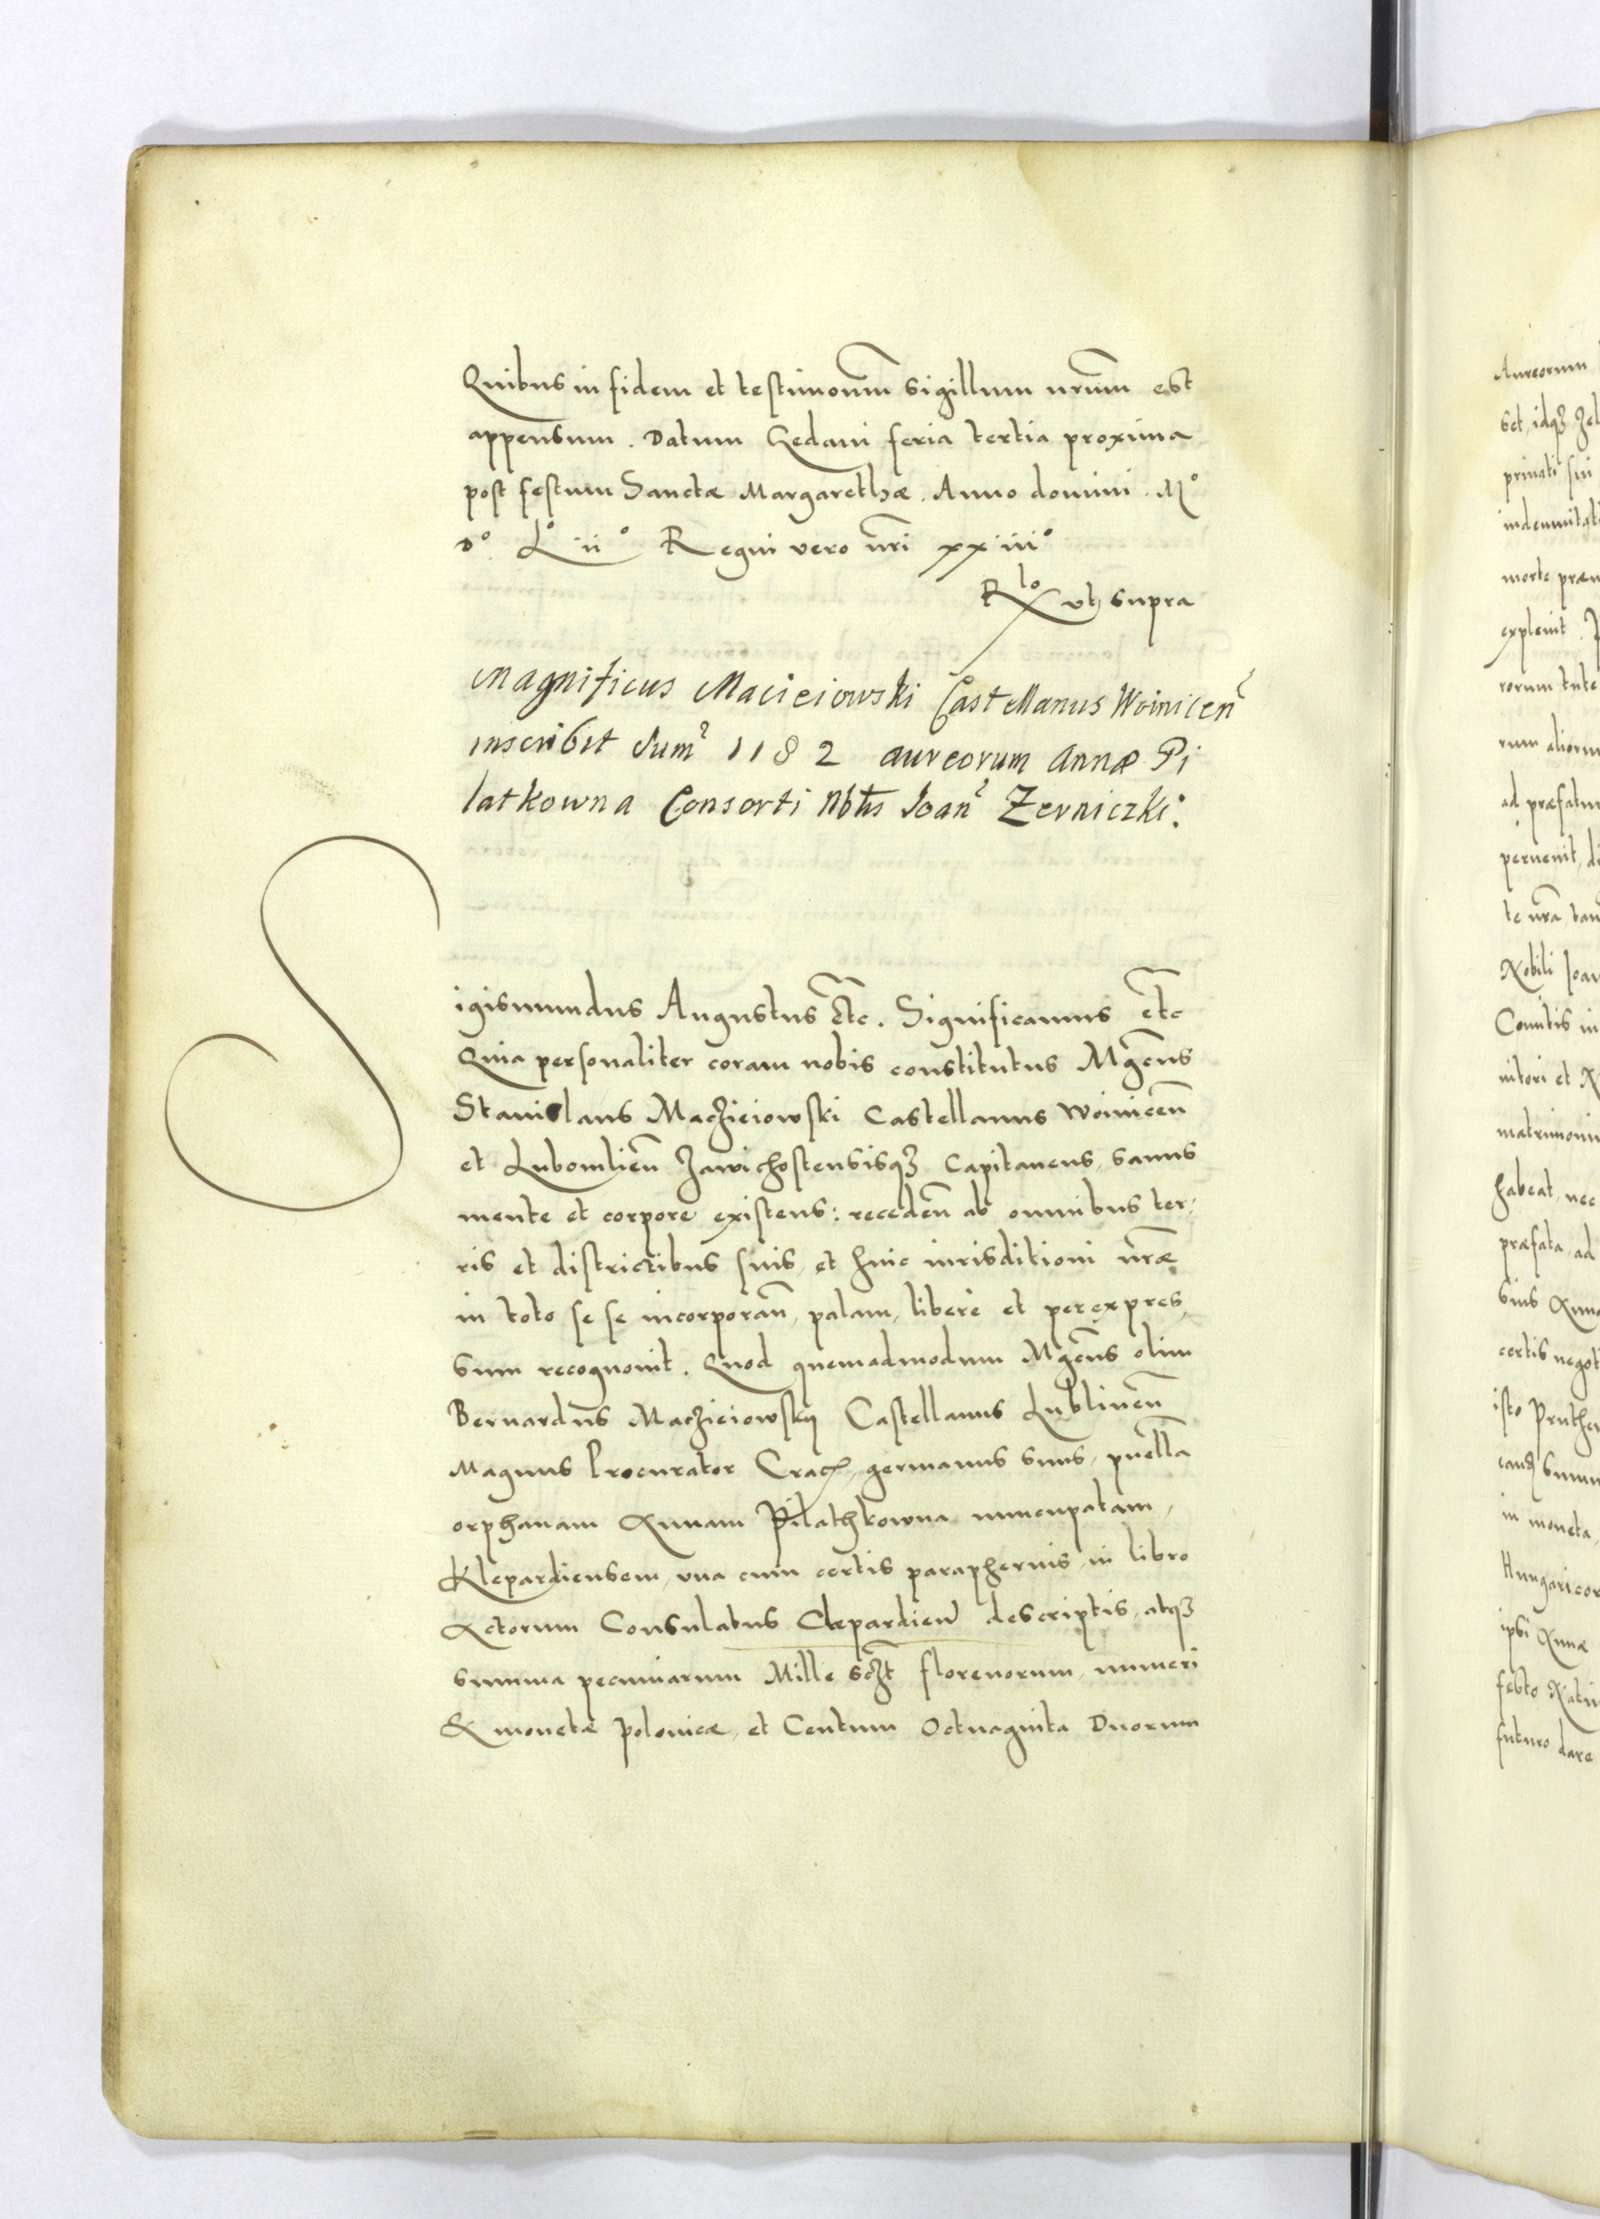 Quibus in fidem et testimonium sigillum nrum est
appensum. Datum Gedani feria tertia proxima
post festum Sanctæ Margarethæ. Anno domini. Mº
Dº. Lº iiº Regni vero nri xxiiiº
Rlo vt supra
Magnificus Macieiowski Castellanus Woinicen
inscribit Sum 1182 aureorum Annæ Pi
latkowna Consorti Nblis Joan Zerniczki:
Sigismundus Augustus etc. Significamus etc
Quia personaliter coram nobis constitutus Mgcus
Stanislaus Maczieiowski Castellanus Woinicen
et Lubomlien Zawichostensisq3 Capitaneus, sanus
mente et corpore existens: receden ab omnibus ter,
ris et districtibus suis, et huic iurisditioni nræ
in toto se se incorporan, palam, libere et per expres,
sum recognouit. Quod quemadmodum Mgcus olim
Bernardus Maczieiowsky Castellanus Lublinen
Magnus Procurator Crac, germanus suus, puella
orphanam Annam Pilathkowna nuncupatam,
Klepardiensem, vna cum certis paraphernis, in libro
Actorum Consulatus Clepardien descriptis, atq3
summa pecuniarum Mille sczt florenorum, numeri
& monetæ polonicæ, et Centum Octuaginta Duorum
Aureorum
set, idq3
priuati sui
morte
expleuit.
rum
ad præfatum
peruenit,
te nra
Nobili Joan
Comitis in
nitori et
matrimoniu
habeat, nec
præfata, ad
suis Anna
certis negot
isto
in moneta,
Hungaricor
ipsi Annæ
festo
futuro dare